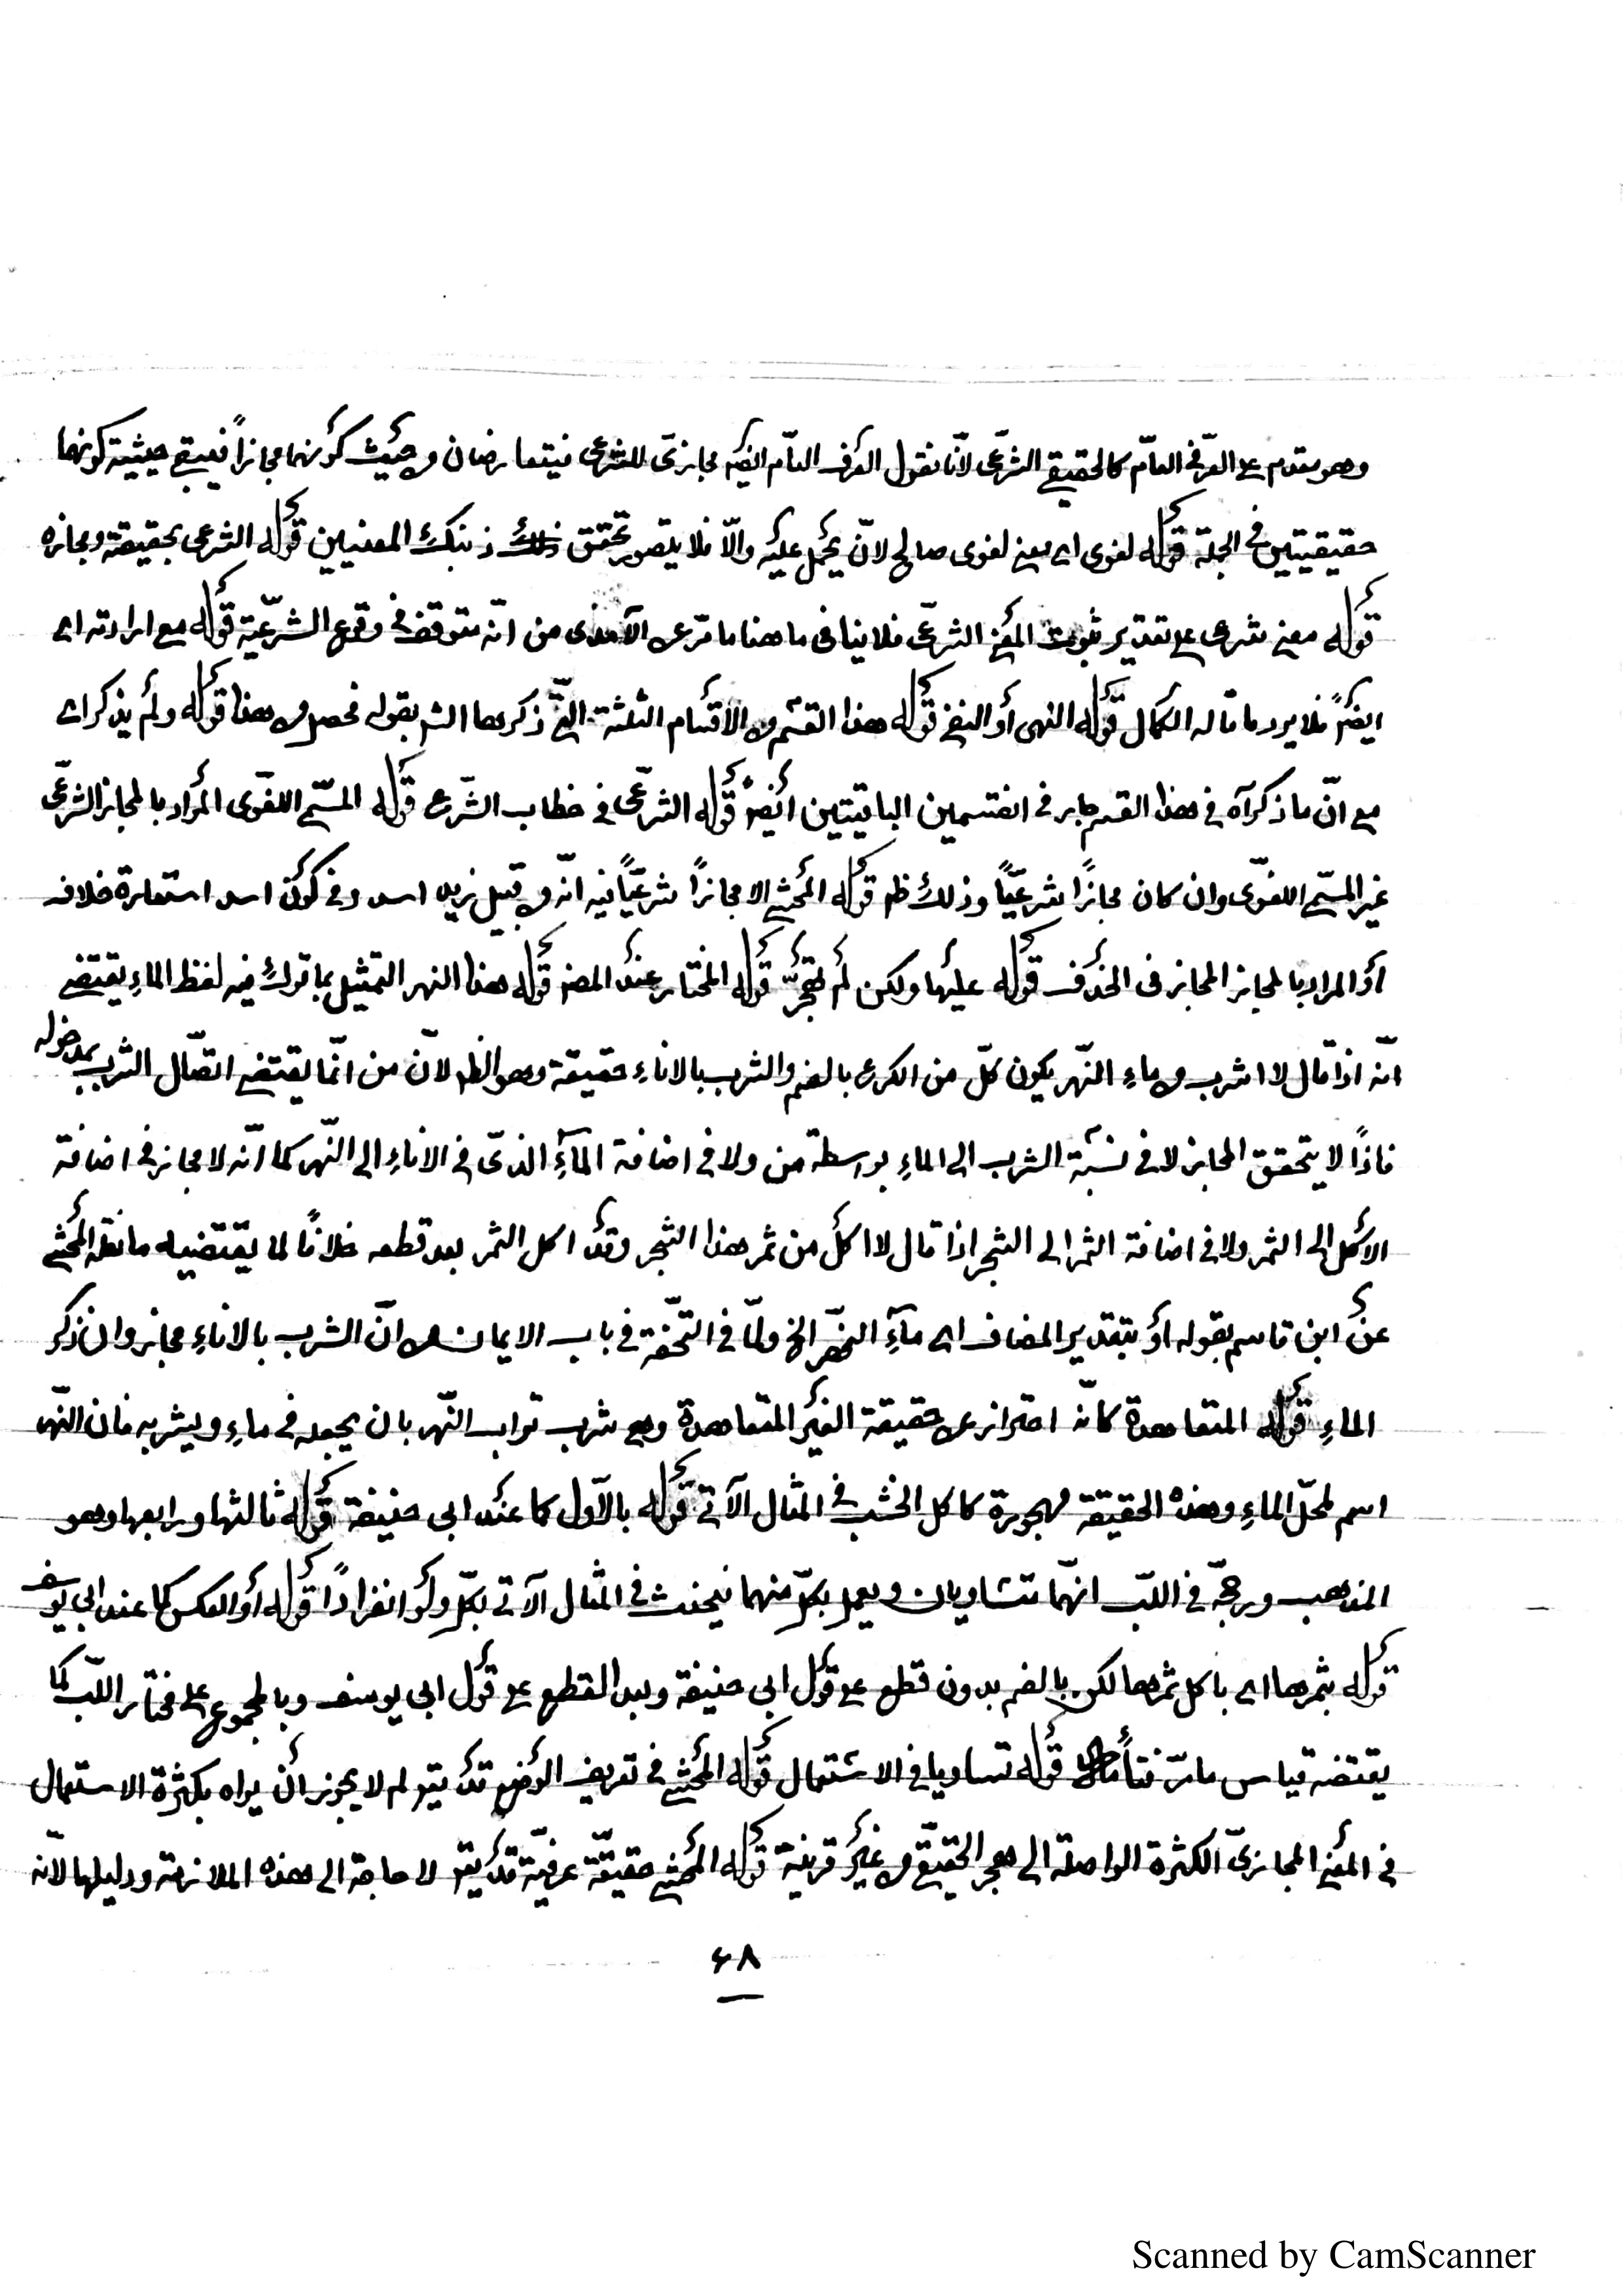 وهو مقدم على العرفى العامّ كالحقيقى الشرعى لأنّا نقول العرف العامّ ايضا مجازىّ للشرعى فيتعارضان من حيث كونهما مجازاً فيبقى حيثية كونهما
حقيقيتين فى الجملة قوله لغوى اى معنى لغوى صالح لانّ يحمل عليه والّا فلا يتصور تحقق ذينك المعنيين قوله الشرعى بحقيقته ومجازه
قوله معنى شرعى على تقدير ثبوت المعنى الشرعىّ فلا ينافى ما هنا ما مرّ عن الآمدى من انّه متوقف فى وقوع الشرعيّة قوله مع ارادته اى
ايضاً فلا يرد ما قاله الكمال قوله النهى أو النفى قوله هذا القسم من الاقسام الثلثة الّتى ذكرها الش بقوله فحصل من هذا قوله ولم يذكر اى
مع انّ ما ذكرآه فى هذا القسم جار فى القسمين الباقيتين ايضاً قوله الشرعىّ فى خطاب الشّرع قوله المسمّى اللغوى المراد بالمجاز الشرعىّ
غير المسمّى اللغوىّ وان كان مجازًا شرعيًّا وذلك ظ قوله المحشى الا مجازًا شرعيًّا فيه انّه من قبيل زيد اسد وفى كون اسد استعارة خلاف
أو المراد بالمجاز المجاز فى الحذف قوله عليها ولكن لم تهجر قوله المختار عند المص قوله هذا النهر التمثيل بما ترك فيه لفظ الماءِ يقتضى
انّه اذا قال لا اشرب من ماءِ النّهر يكون كلّ من الكرع بالفم والشرب بالاناءِ حقيقة وهو الظ لانّ من انّما يقتضى اتصّال الشرب بمدخوله
فاذًا لا يتحقق المجاز لا فى نسبة الشرب الى الماءِ بواسطة من ولا فى اضافة المآءِ الذىّ فى الاناءِ الى النّهر كما انّه لا مجاز فى اضافة
الأكل الى الثمر ولا فى اضافة الثمر الى الشجر اذا قال لا اكل من ثمر هذا الشجر وقد اكل الثمر بعد قطعه خلافًا لما يقتضيه ما نقله المحشى
عن ابن قاسم بقوله أو بتقدير المضاف اى مآءِ النّهر الخ ولمّا فى التّحفة فى باب الايمان من انّ الشرب بالاناءِ مجاز وان ذكر
الماءِ قوله المتعاهدة كانّه احتراز عن حقيقة الغير المتعاهدة وهى شرب تراب النّهر بان يجعله فى ماءِ ويشربه فان النّهر
اسم لمحلّ الماءِ وهذه الحقيقة مهجورة كاكل الخشب فى المثال الآتى قوله بالآول كما عند ابى حنيفة قوله ثالثها ورابعها وهو
المذهب ورجّحه فى اللبّ انهّما متساويان ويعمل بكلّ منهما فيحنث فى المثال الآتى بكلّ ولو انفرادًا قوله أو العكس كما عند ابى يوسف
قوله بثمرها اى باكل ثمرها لكن بالفم بدون قطع على قول ابى حنيفة وبعد القطع على قول ابى يوسف وبالمجموع على مختار اللبّ كما
يقتضه قياس مامرّ فتأمل قوله تساويا فى الاستعمال قوله المحشى فى تعريف الوضع قد يقو لم لا يجوز أن يراد بكثرة الاستعمال
فى المعنى المجازىّ الكثرة الواصلة الى هجر الحقيقى من غير قرينة قوله المحشى حقيقة عرفيّة قد يقو لا حاجة الى هذه الملازمة ودليلها لانّه
۶۸
Scanned by CamScanner